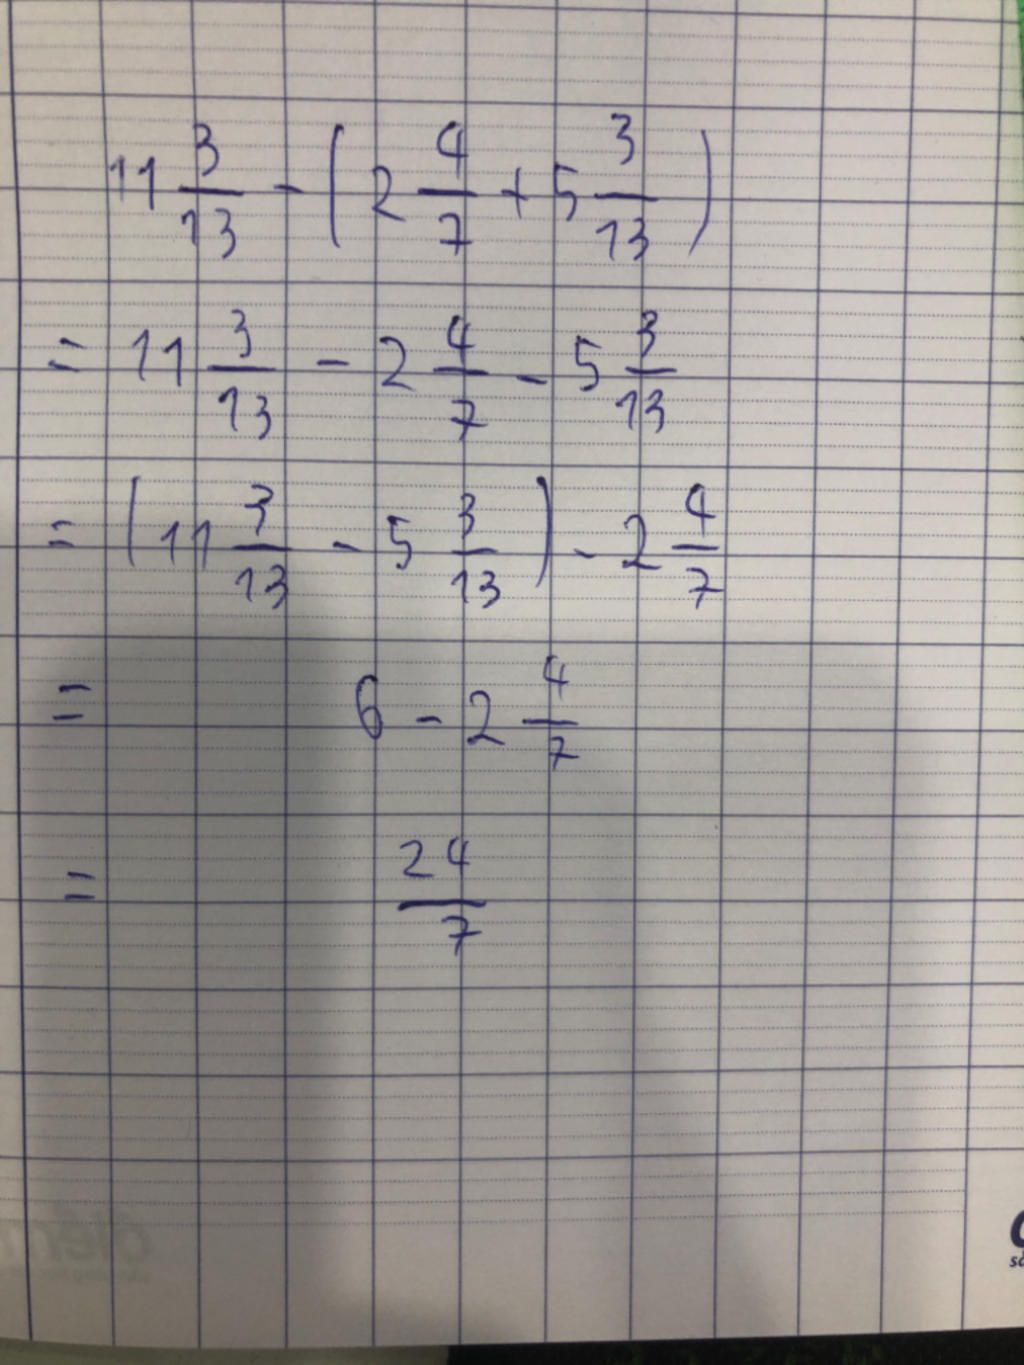 11 3/13 - (2 4/7 + 5 3/13)
= 11 3/13 - 2 4/7 - 5 3/13
= (11 3/13 - 5 3/13) - 2 4/7
= 6 - 2 4/7
= 24/7